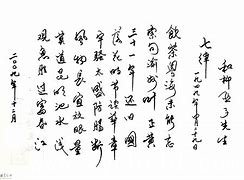 和柳亚子先生
七律
一九四九年四月廿九日
飲茶粤海未能忘
索句渝州叶正黄
三十一年还旧國
落花时節读華章
牢骚太盛防腸断
風物長宜放眼量
莫道昆明池水浅
观魚胜过富春江
二〇〇九年十二月